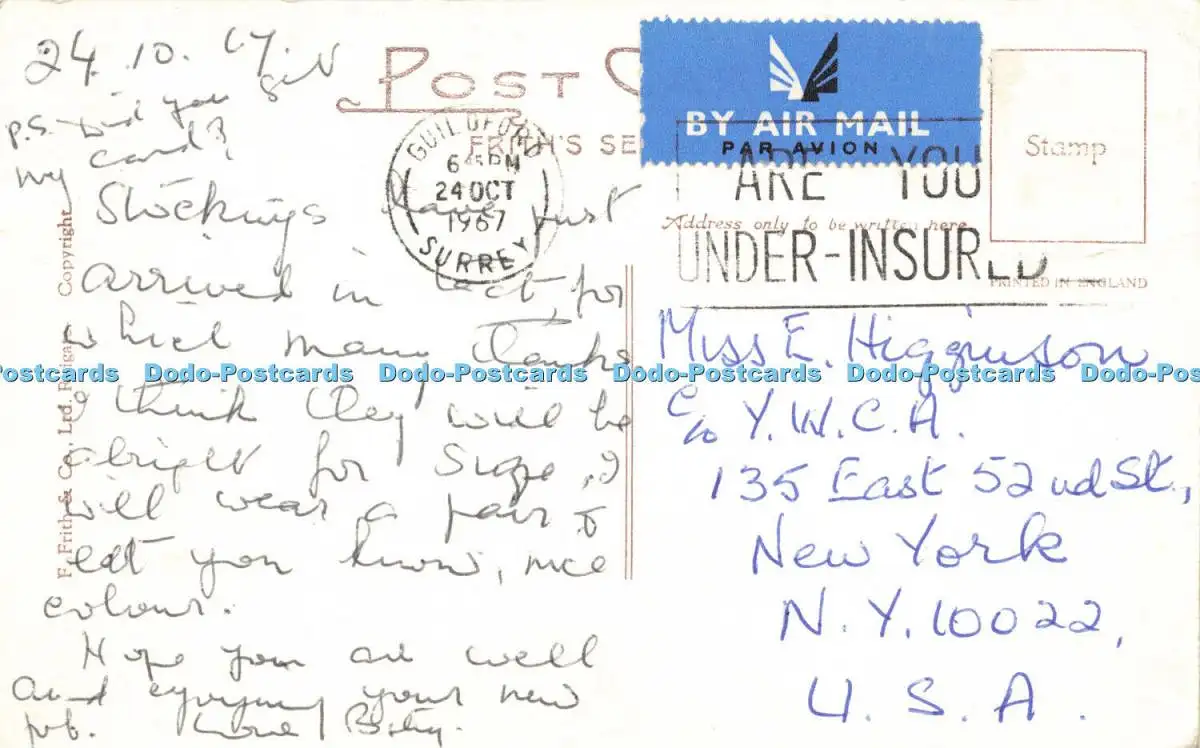 24. 10. 67.
P.S. Did you get
my card?
Stockings have just
arrived in tact, for
which many thanks
I think they will be
alright for size, I
will wear a pair &
let you know, nice
colour.
Hope you are well
and enjoying your new
job. Love
POST C
FRITH'S SE
GUILDFORD
6 45 PM
24 OCT
1967
SURREY
BY AIR MAIL
PAR AVION
ARE YOU
UNDER-INSURED
Stamp
Address only to be written here
PRINTED IN ENGLAND
Miss E. Higginson
C/o Y.W.C.A.
135 East 52nd St.,
New York
N.Y. 10022,
U.S.A.
F. Frith & Co., Ltd. Reigate Copyright
ostcards Dodo-Postcards Dodo-Postcards Dodo-Postcards Dodo-Postcards Dodo-Pos